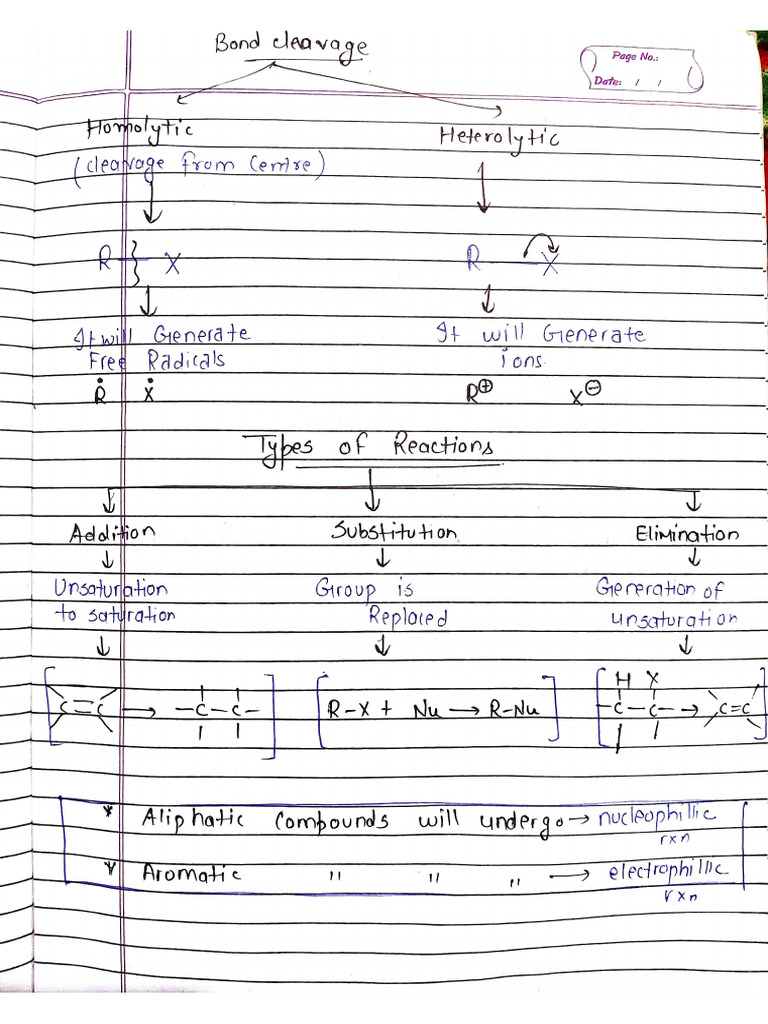 Bond cleavage
Page No.:
Date: / /
Homolytic Heterolytic
(cleavage from Centre)
R X R X
It will Generate It will Generate
Free Radicals ions.
Ṙ Ẋ R⊕ X⊖
Types of Reactions
Addition Substitution Elimination
Unsaturation Group is Generation of
to saturation Replaced unsaturation
H X
[ C=C → -C-C- ] [ R-X + Nu → R-Nu ] [ -C-C- → C=C ]
* Aliphatic Compounds will undergo → nucleophillic
rxn
* Aromatic " " " → electrophillic
rxn